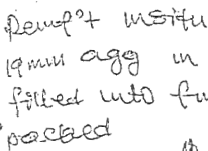 insitu
19mm agg in
filled into fu
packed